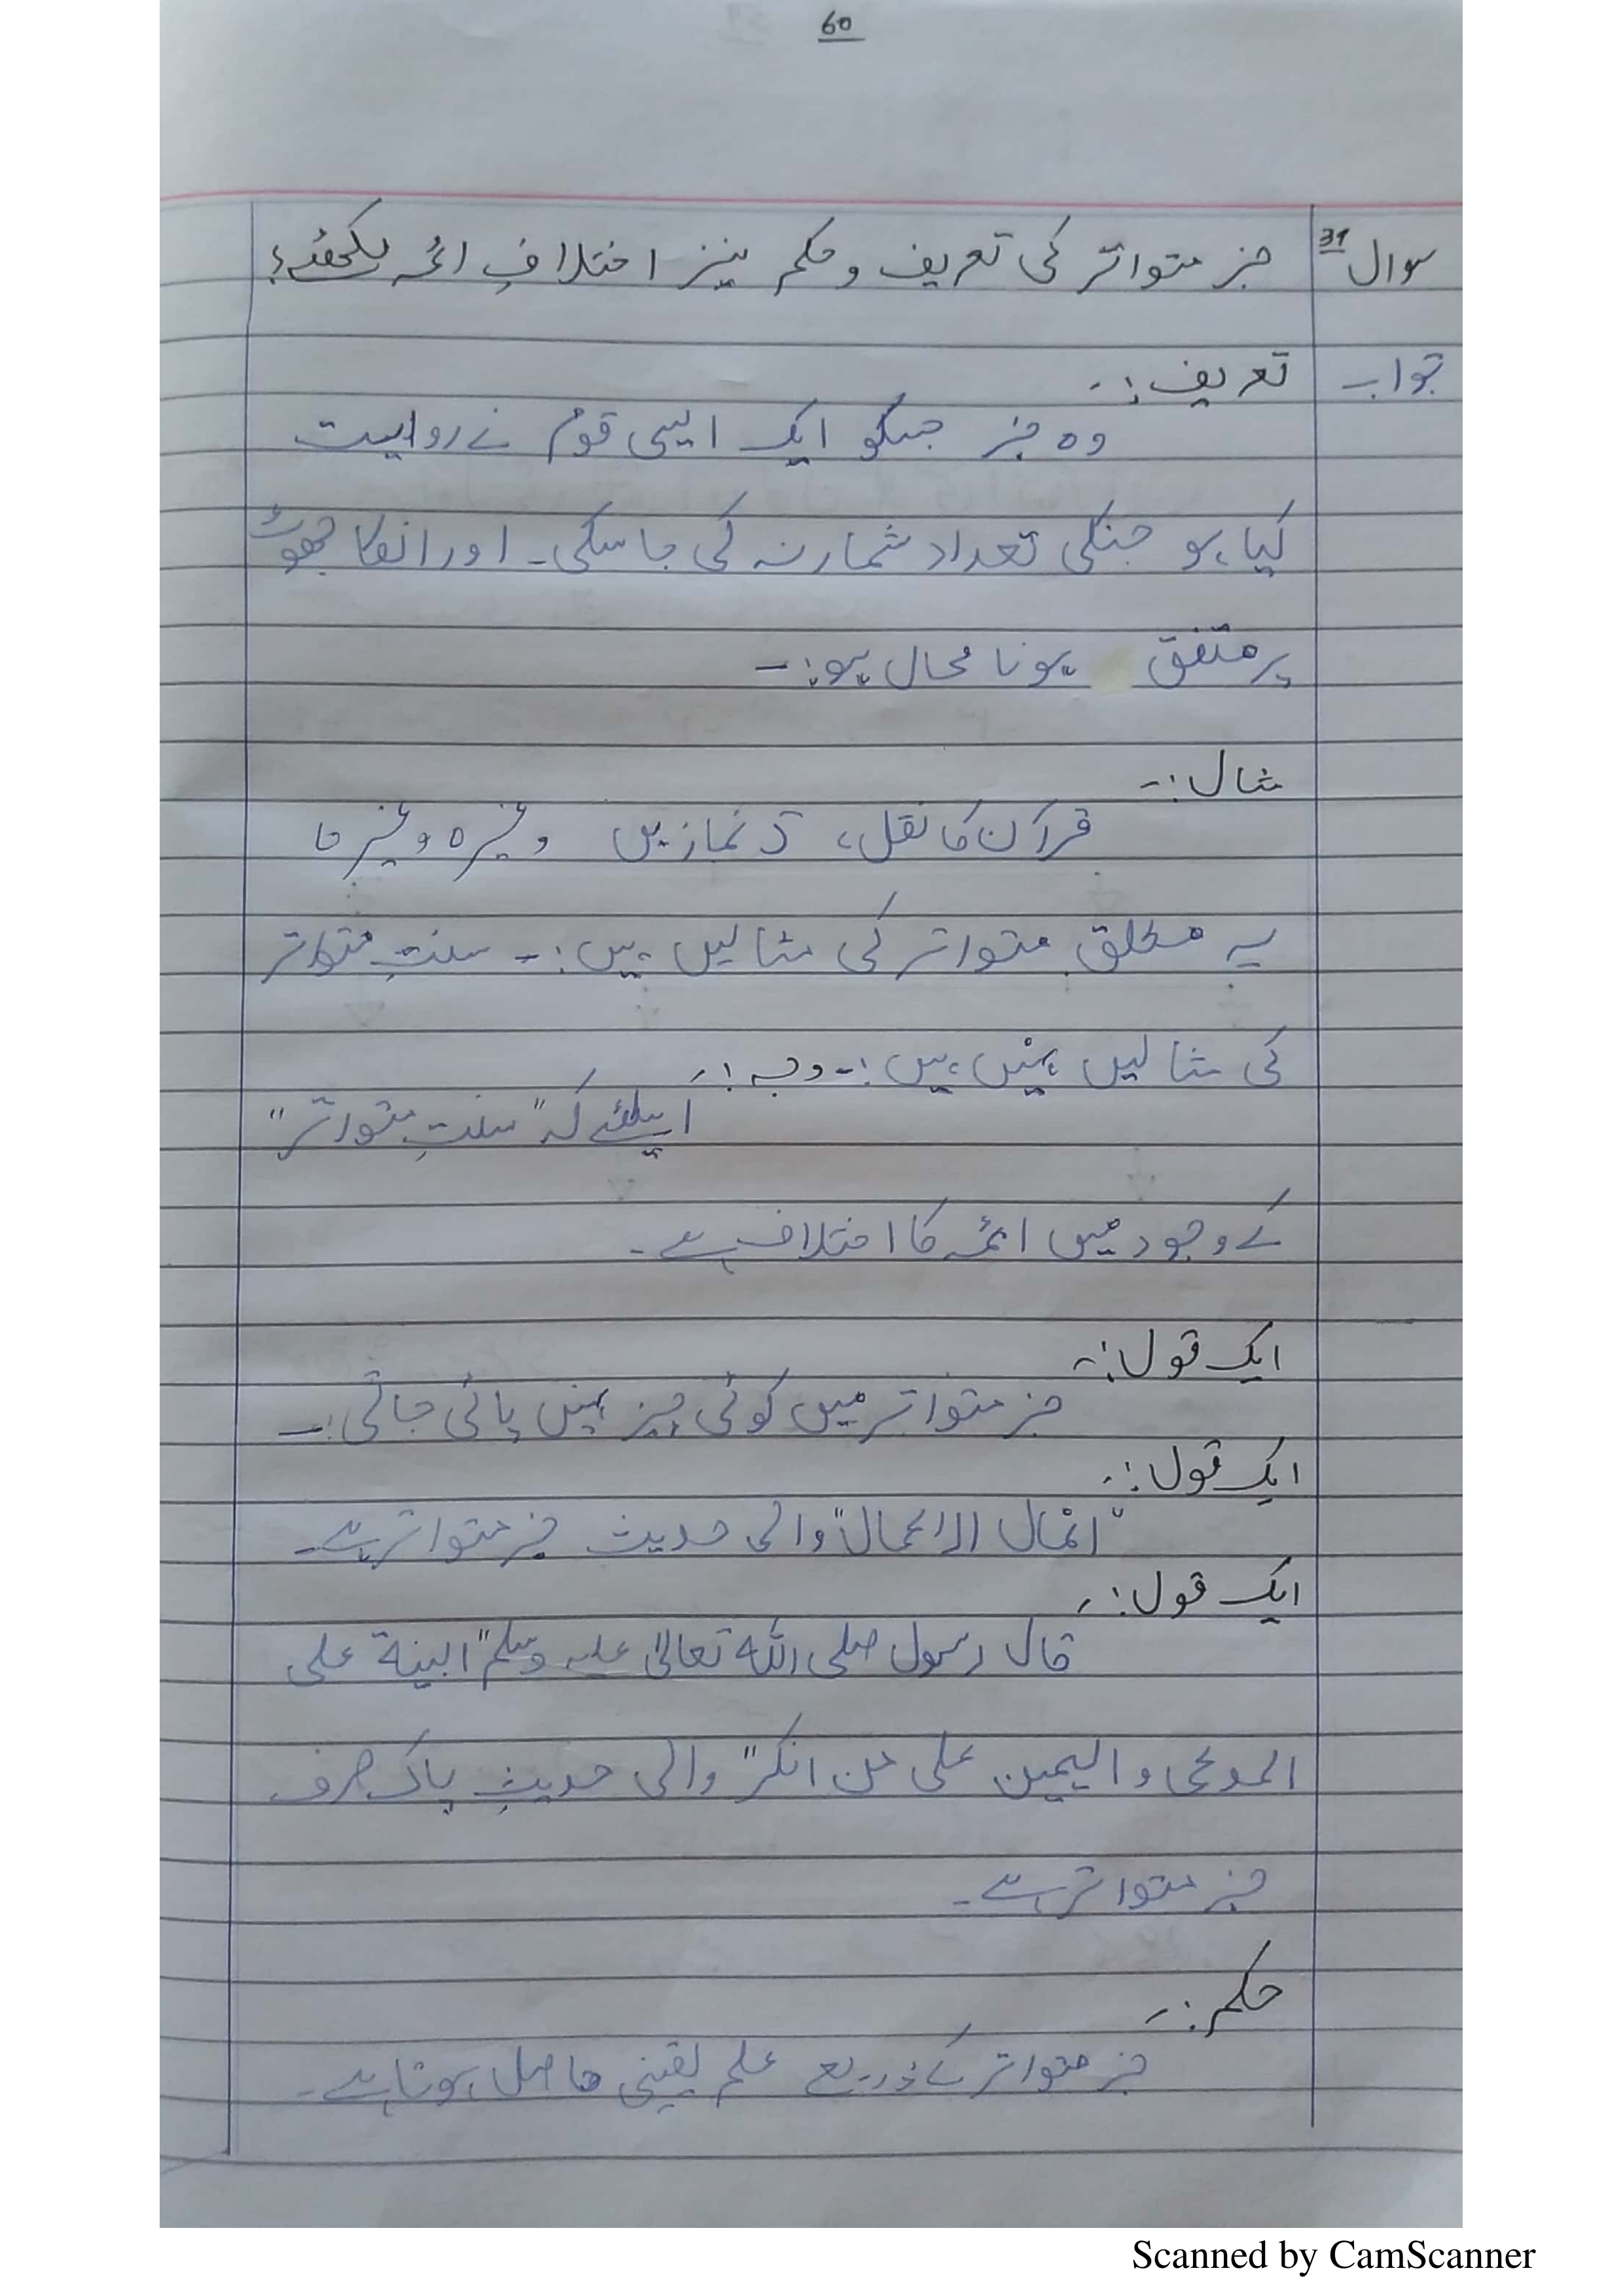 60
سوال 31 خبر متواتر کی تعریف و حکم نیز اختلافِ ائمہ لکھئے؟
جواب تعریف :-
وہ خبر جسکو ایک ایسی قوم نے روایت
کیا ہو جنکی تعداد شمار نہ کی جا سکی۔ اور انکا جھوٹ
پر متفق ہونا محال ہو :-
مثال :-
قرآن کا نقل، نمازیں وغیرہ وغیرہا
یہ مطلق متواتر کی مثالیں ہیں :- سنتِ متواتر
کی مثالیں نہیں ہیں :- وجہ :-
اسلئے کہ "سنتِ متواتر"
کے وجود میں ائمہ کا اختلاف ہے۔
ایک قول :-
خبر متواتر میں کوئی چیز نہیں پائی جاتی :-
ایک قول :-
"انمال الاعمال" والی حدیث خبر متواتر ہے۔
ایک قول :-
قال رسول صلی اللہ تعالیٰ علیہ وسلم "البینۃ علی
المدعی والیمین علی من انکر" والی حدیثِ پاک صرف
خبر متواتر ہے۔
حکم :-
خبر متواتر کے ذریعے علم یقینی حاصل ہوتا ہے۔
Scanned by CamScanner